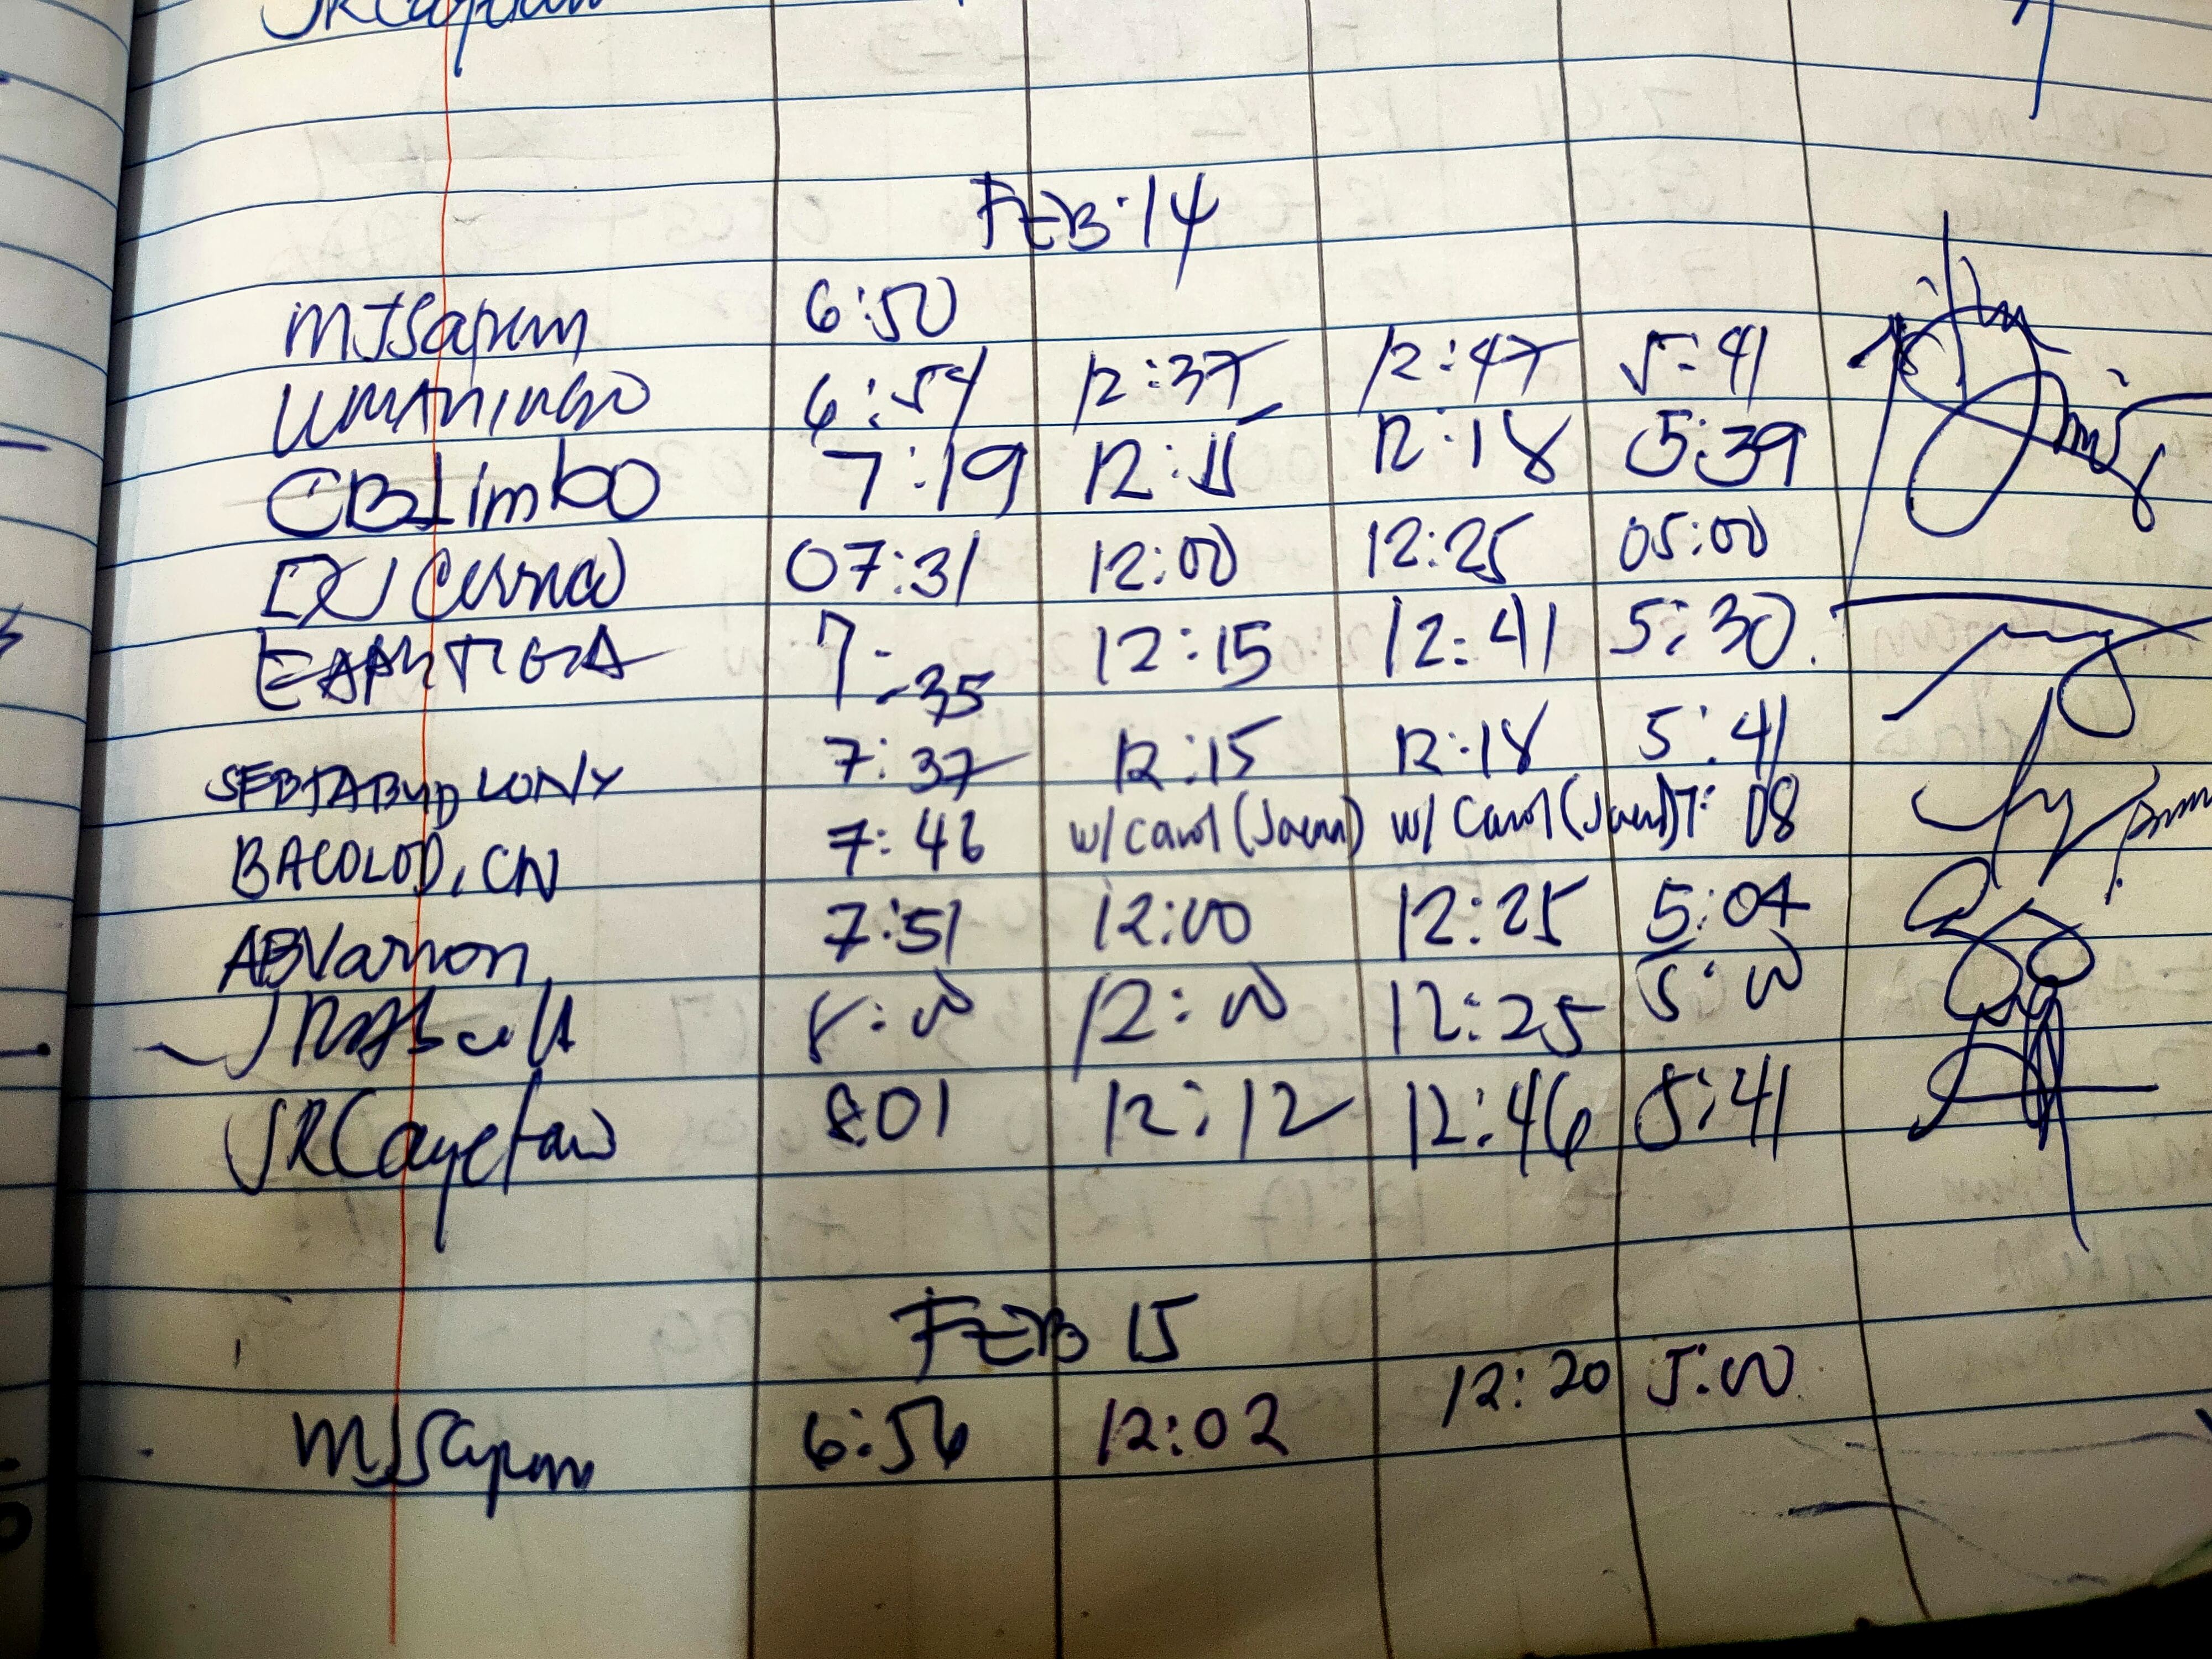 JRCayetano
FEB. 14
MJSapun 6:50
UMANINGO 6:54 12:37 12:47 5:41
CBLimbo 7:19 12:15 12:18 5:39
07:31 12:00 12:25 05:00
7:35 12:15 12:41 5:30
7:37 12:15 12:18 5:41
BACOLOD, CN 7:46 w/ Carol (Jaen) w/ Carol (Jaen) 7:08
ABVarron 7:51 12:00 12:25 5:04
8:00 12:00 12:25 5:00
JRCayetano 8:01 12:12 12:46 5:41
FEB 15
MJSapun 6:56 12:02 12:20 5:00